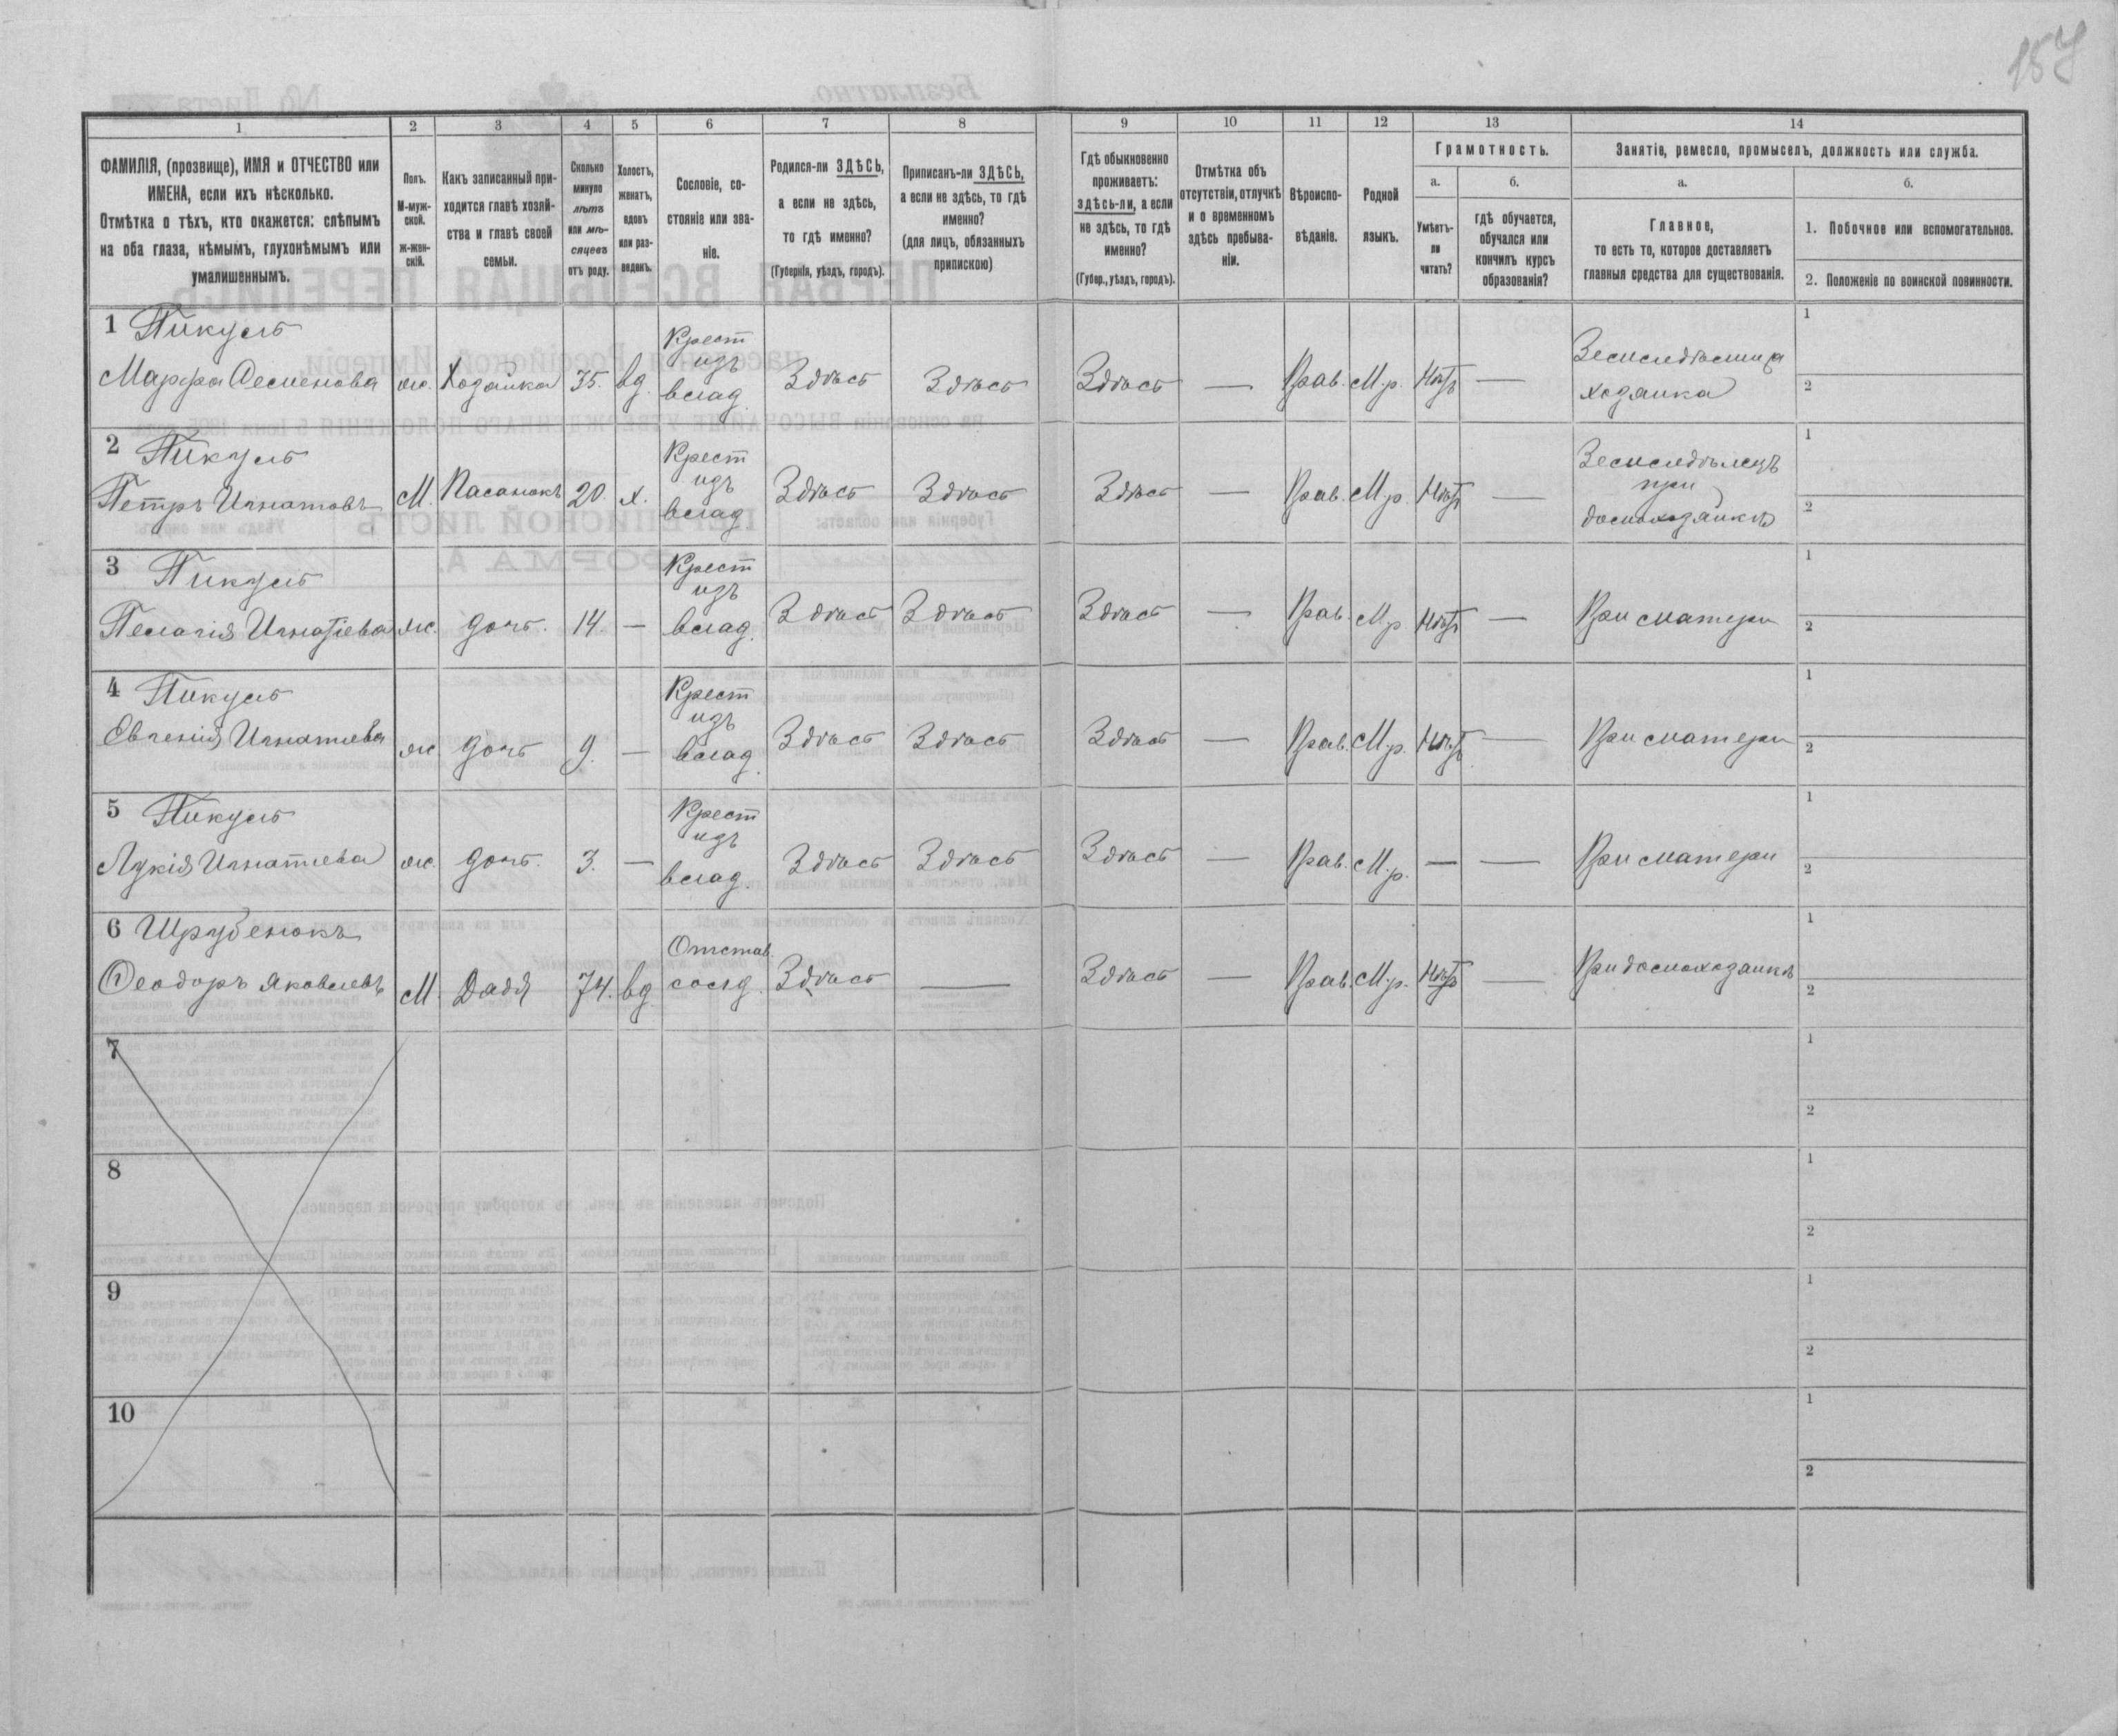 157
1 2 3 4 5 6 7 8 9 10 11 12 13 14
ФАМИЛІЯ, (прозвище), ИМЯ и ОТЧЕСТВО или
ИМЕНА, если ихъ нѣсколько.
Отмѣтка о тѣхъ, кто окажется: слѣпымъ
на оба глаза, нѣмымъ, глухонѣмымъ или
умалишеннымъ.
Полъ.
М-муж-
ской.
ж-жен-
скій.
Какъ записанный при-
ходится главѣ хозяй-
ства и главѣ своей
семьи.
Сколько
минуло
лѣтъ
или мѣ-
сяцевъ
отъ роду.
Холостъ,
женатъ,
вдовъ
или раз-
веденъ.
Сословіе, со-
стояніе или зва-
ніе.
Родился-ли ЗДѢСЬ,
а если не здѣсь,
то гдѣ именно?
(Губернія, уѣздъ, городъ).
Приписанъ-ли ЗДѢСЬ,
а если не здѣсь, то гдѣ
именно?
(для лицъ, обязанныхъ
припискою)
Гдѣ обыкновенно
проживаетъ:
здѣсь-ли, а если
не здѣсь, то гдѣ
именно?
(Губер., уѣздъ, городъ).
Отмѣтка объ
отсутствіи, отлучкѣ
и о временномъ
здѣсь пребыва-
ніи.
Вѣроиспо-
вѣданіе.
Родной
языкъ.
Грамотность.
а.
Умѣетъ-
ли
читать?
б.
гдѣ обучается,
обучался или
кончилъ курсъ
образованія?
Занятіе, ремесло, промыселъ, должность или служба.
а.
Главное,
то есть то, которое доставляетъ
главныя средства для существованія.
б.
1. Побочное или вспомогательное.
2. Положеніе по воинской повинности.
1 Пикуль
Марфа Семенова
ж.
Хозяйка
35.
вд.
Крест
изъ
влад.
Здѣсь
Здѣсь
Здѣсь
—
Прав.
М.р.
Нѣтъ
—
Земледѣлица
хозяйка
1
2
2 Пикуль
Петръ Игнатовъ
М.
Пасынокъ
20.
х.
Крест
изъ
влад
Здѣсь
Здѣсь
Здѣсь
—
Прав.
М.р.
Нѣтъ
—
Земледѣлецъ
при
домохозяйкѣ
1
2
3 Пикуль
Пелагія Игнатіева
ж.
дочь.
14.
—
Крест
изъ
влад.
Здѣсь
Здѣсь
Здѣсь
—
Прав.
М.р
Нѣтъ
—
При матери
1
2
4 Пикуль
Евгенія Игнатиева
ж
дочь
9.
—
Крест
изъ
влад.
Здѣсь
Здѣсь
Здѣсь
—
Прав.
М.р.
Нѣтъ
—
При матери
1
2
5 Пикуль
Лукія Игнатиева
ж.
дочь.
3.
—
Крест
изъ
влад.
Здѣсь
Здѣсь
Здѣсь
—
Прав.
М.р.
—
—
При матери
1
2
6 Шрубенокъ
Ѳеодоръ Яковлевъ
М.
Дядя
74.
вд.
Отстав.
солд.
Здѣсь
—
Здѣсь
—
Прав.
М.р.
Нѣтъ
—
При домохозяйкѣ
1
2
7
1
2
8
1
2
9
1
2
10
1
2